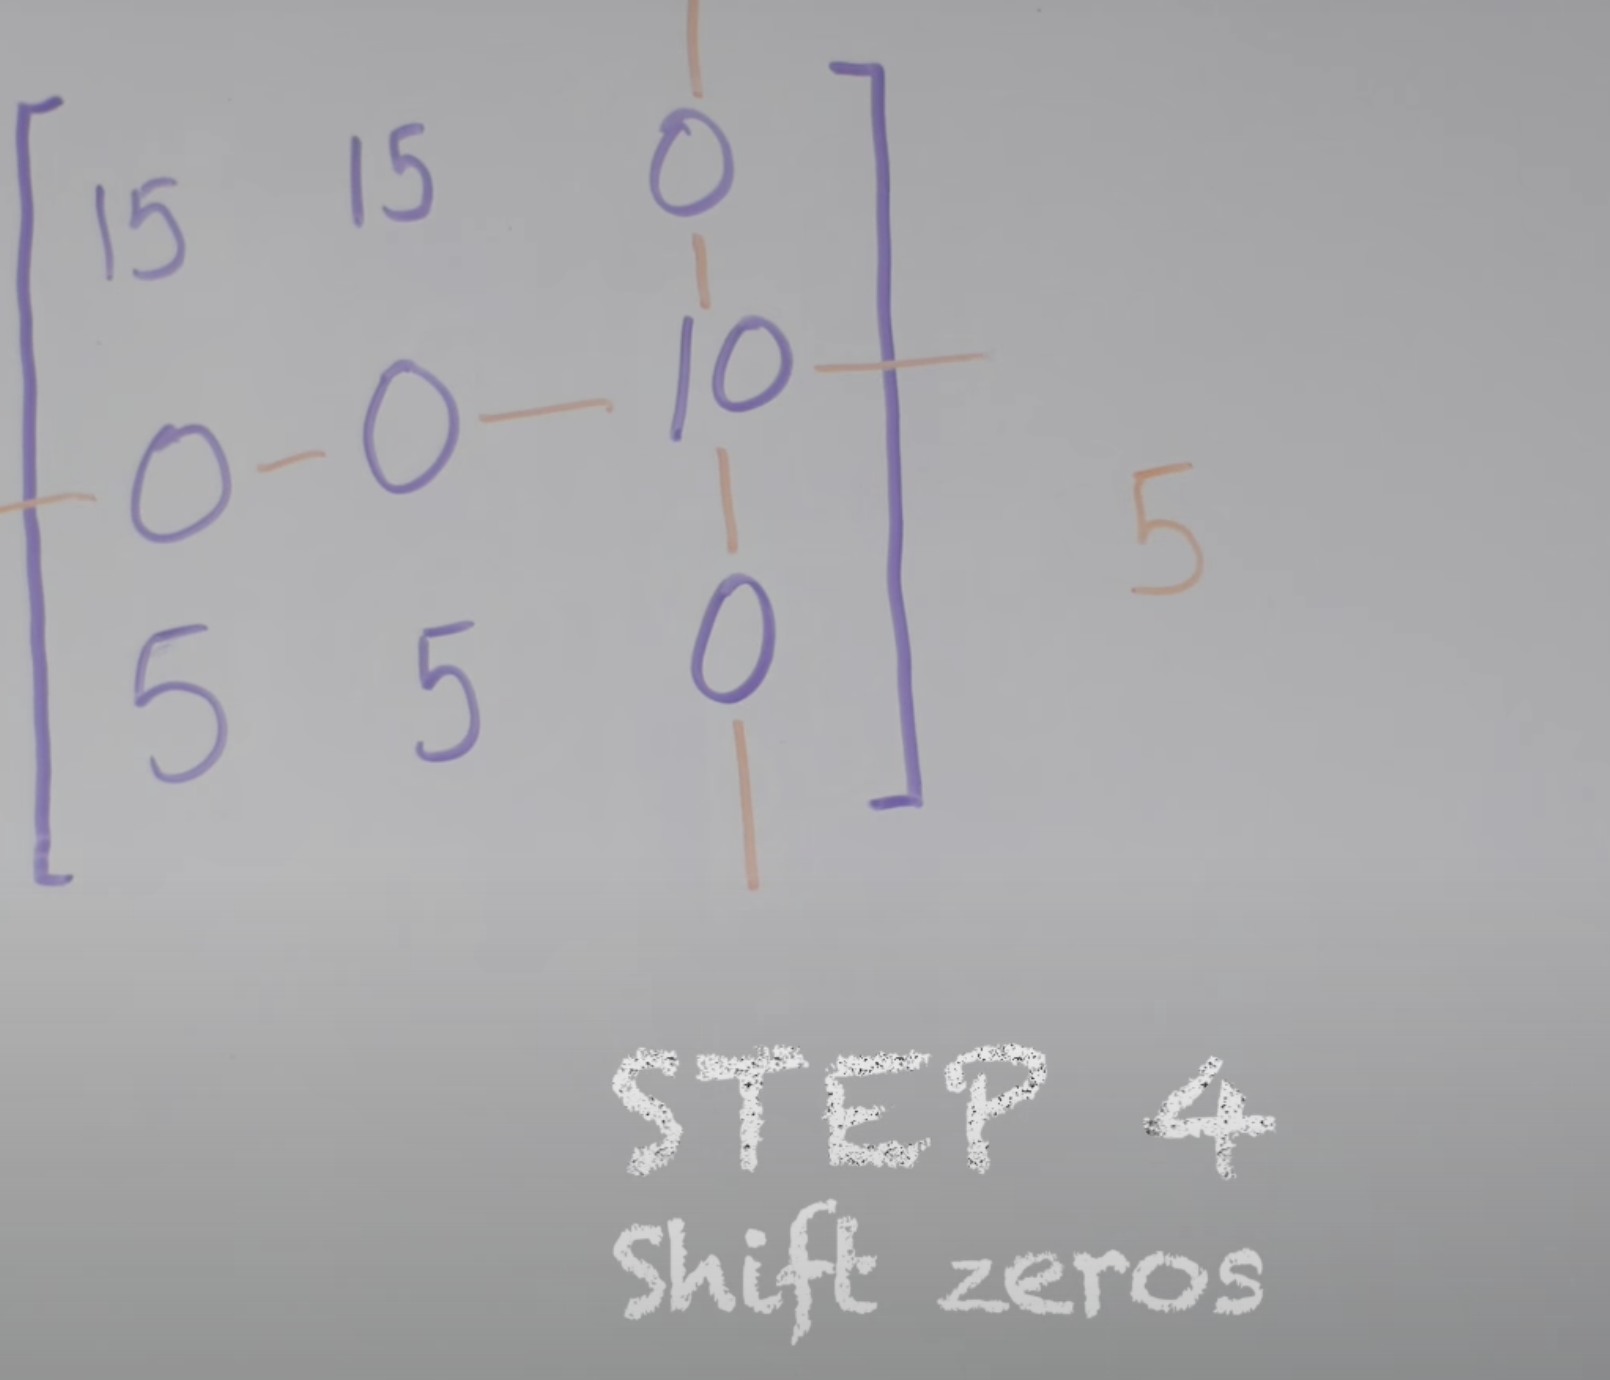 15 15 0
0 0 10
5 5 0
5
STEP 4
Shift zeros